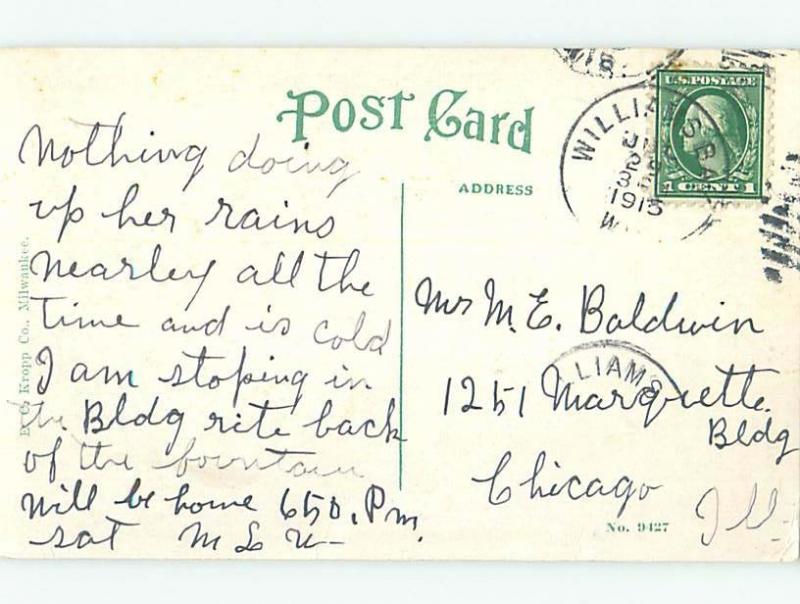 Post Card
ADDRESS
U.S. POSTAGE
1 CENT 1
WILLIAMSBAY
1915
Nothing doing
up her rains
nearley all the
time and is cold
I am stoping in
the Bldg rite back
of the fountain
will be home 650. P.m.
sat
Mrs M. E. Baldwin
1251 Marquette
Bldg
Chicago
Ill.
LLIAMS
No. 9427
E. C. Kropp Co., Milwaukee.